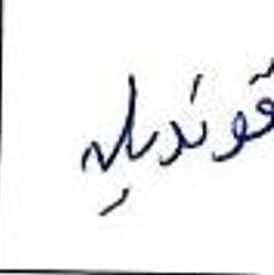 قونديله